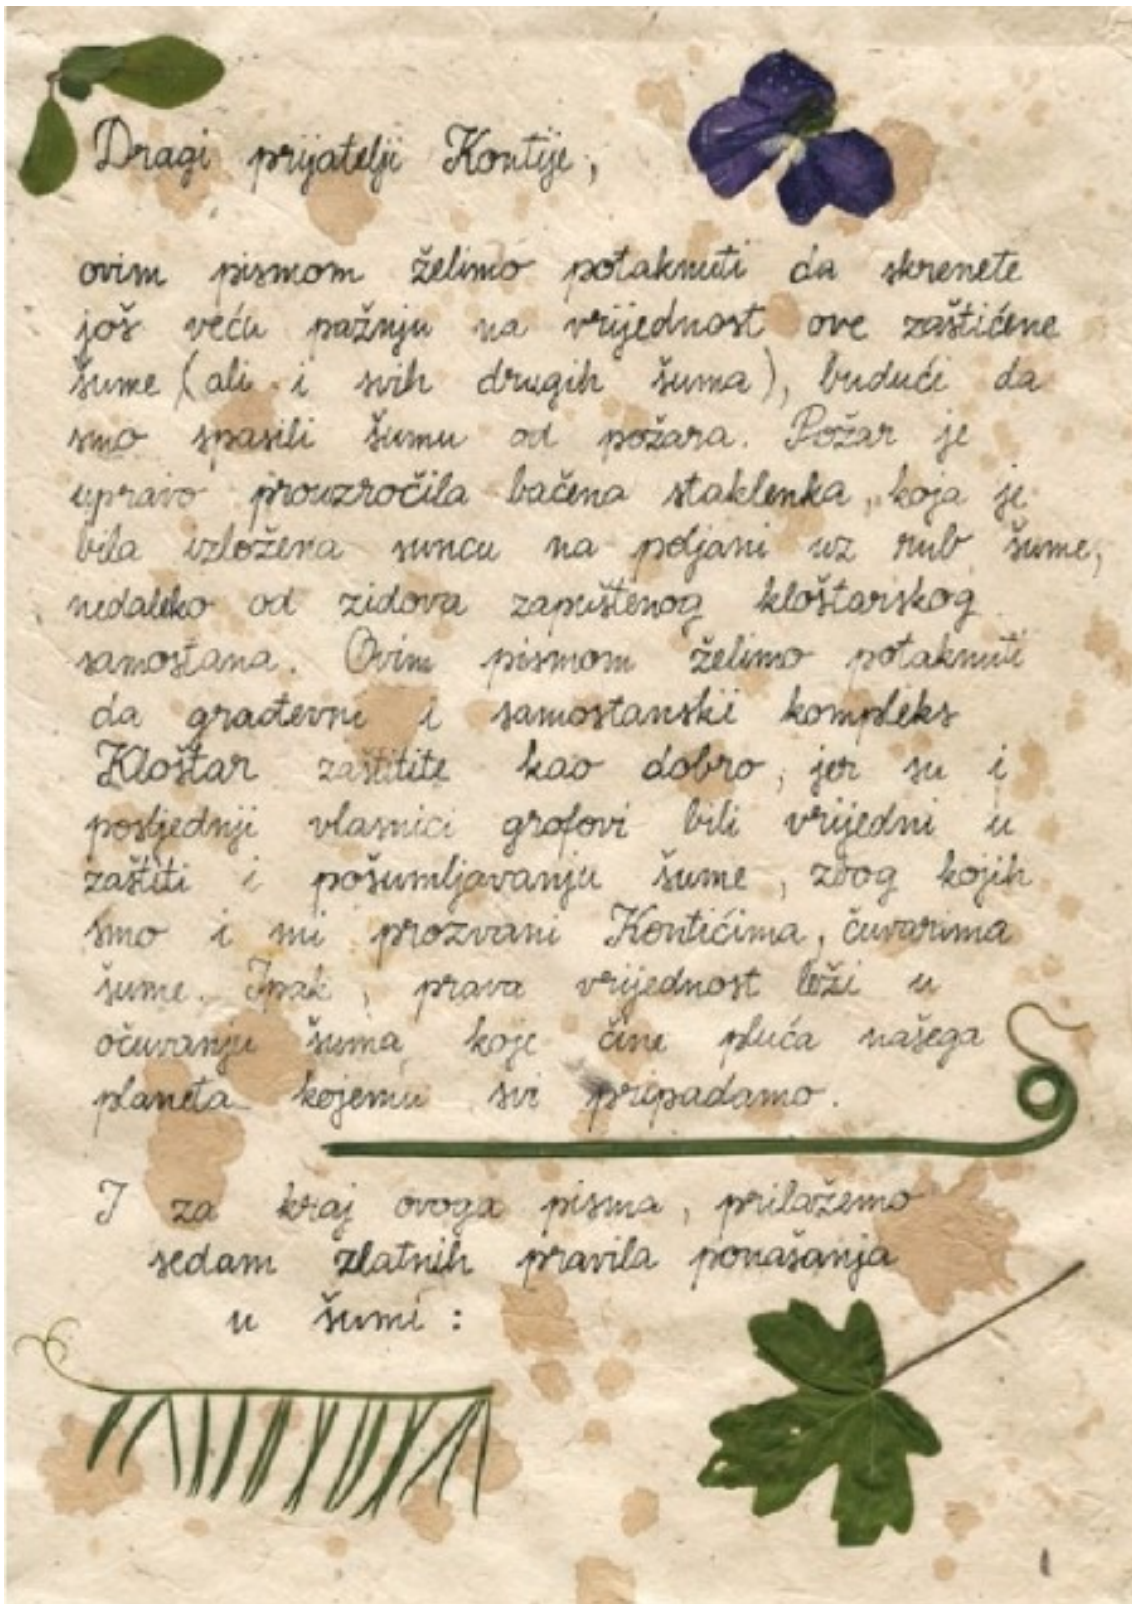 Dragi prijatelji Kontije,
ovim pismom želimo potaknuti da skrenete
još veću pažnju na vrijednost ove zaštićene
šume (ali i svih drugih šuma), budući da
smo spasili šumu od požara. Požar je
upravo prouzročila bačena staklenka, koja je
bila izložena suncu na poljani uz rub šume,
nedaleko od zidova zapuštenog kloštarskog
samostana. Ovim pismom želimo potaknuti
da građevni i samostanski kompleks
Kloštar zaštitite kao dobro, jer su i
posljednji vlasnici grofovi bili vrijedni u
zaštiti i pošumljavanju šume, zbog kojih
smo i mi prozvani Kontićima, čuvarima
šume. Ipak, prava vrijednost leži u
očuvanju šuma koje čine pluća našega
planeta kojemu svi pripadamo.
I za kraj ovoga pisma, prilažemo
sedam zlatnih pravila ponašanja
u šumi: